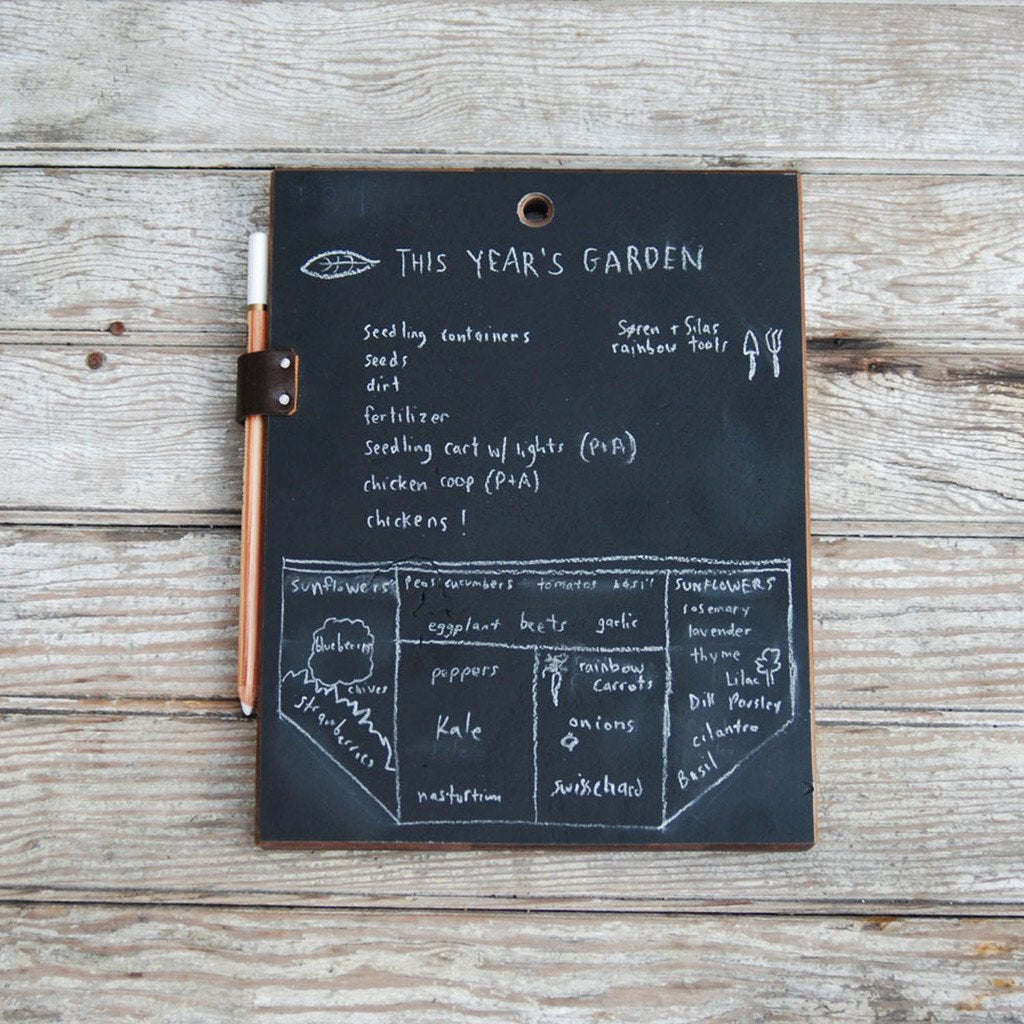 THIS YEAR'S GARDEN
seedling containers
seeds
dirt
fertilizer
seedling cart w/ lights (P+A)
chicken coop (P+A)
chickens !
Søren + Silas
rainbow tools
sunflowers
blueberries
chives
strawberries
peas cucumbers tomatos basil
eggplant beets garlic
peppers
Kale
nasturtium
rainbow
carrots
onions
swisschard
SUNFLOWERS
rosemary
lavender
thyme
Lilac
Dill Parsley
cilantro
Basil